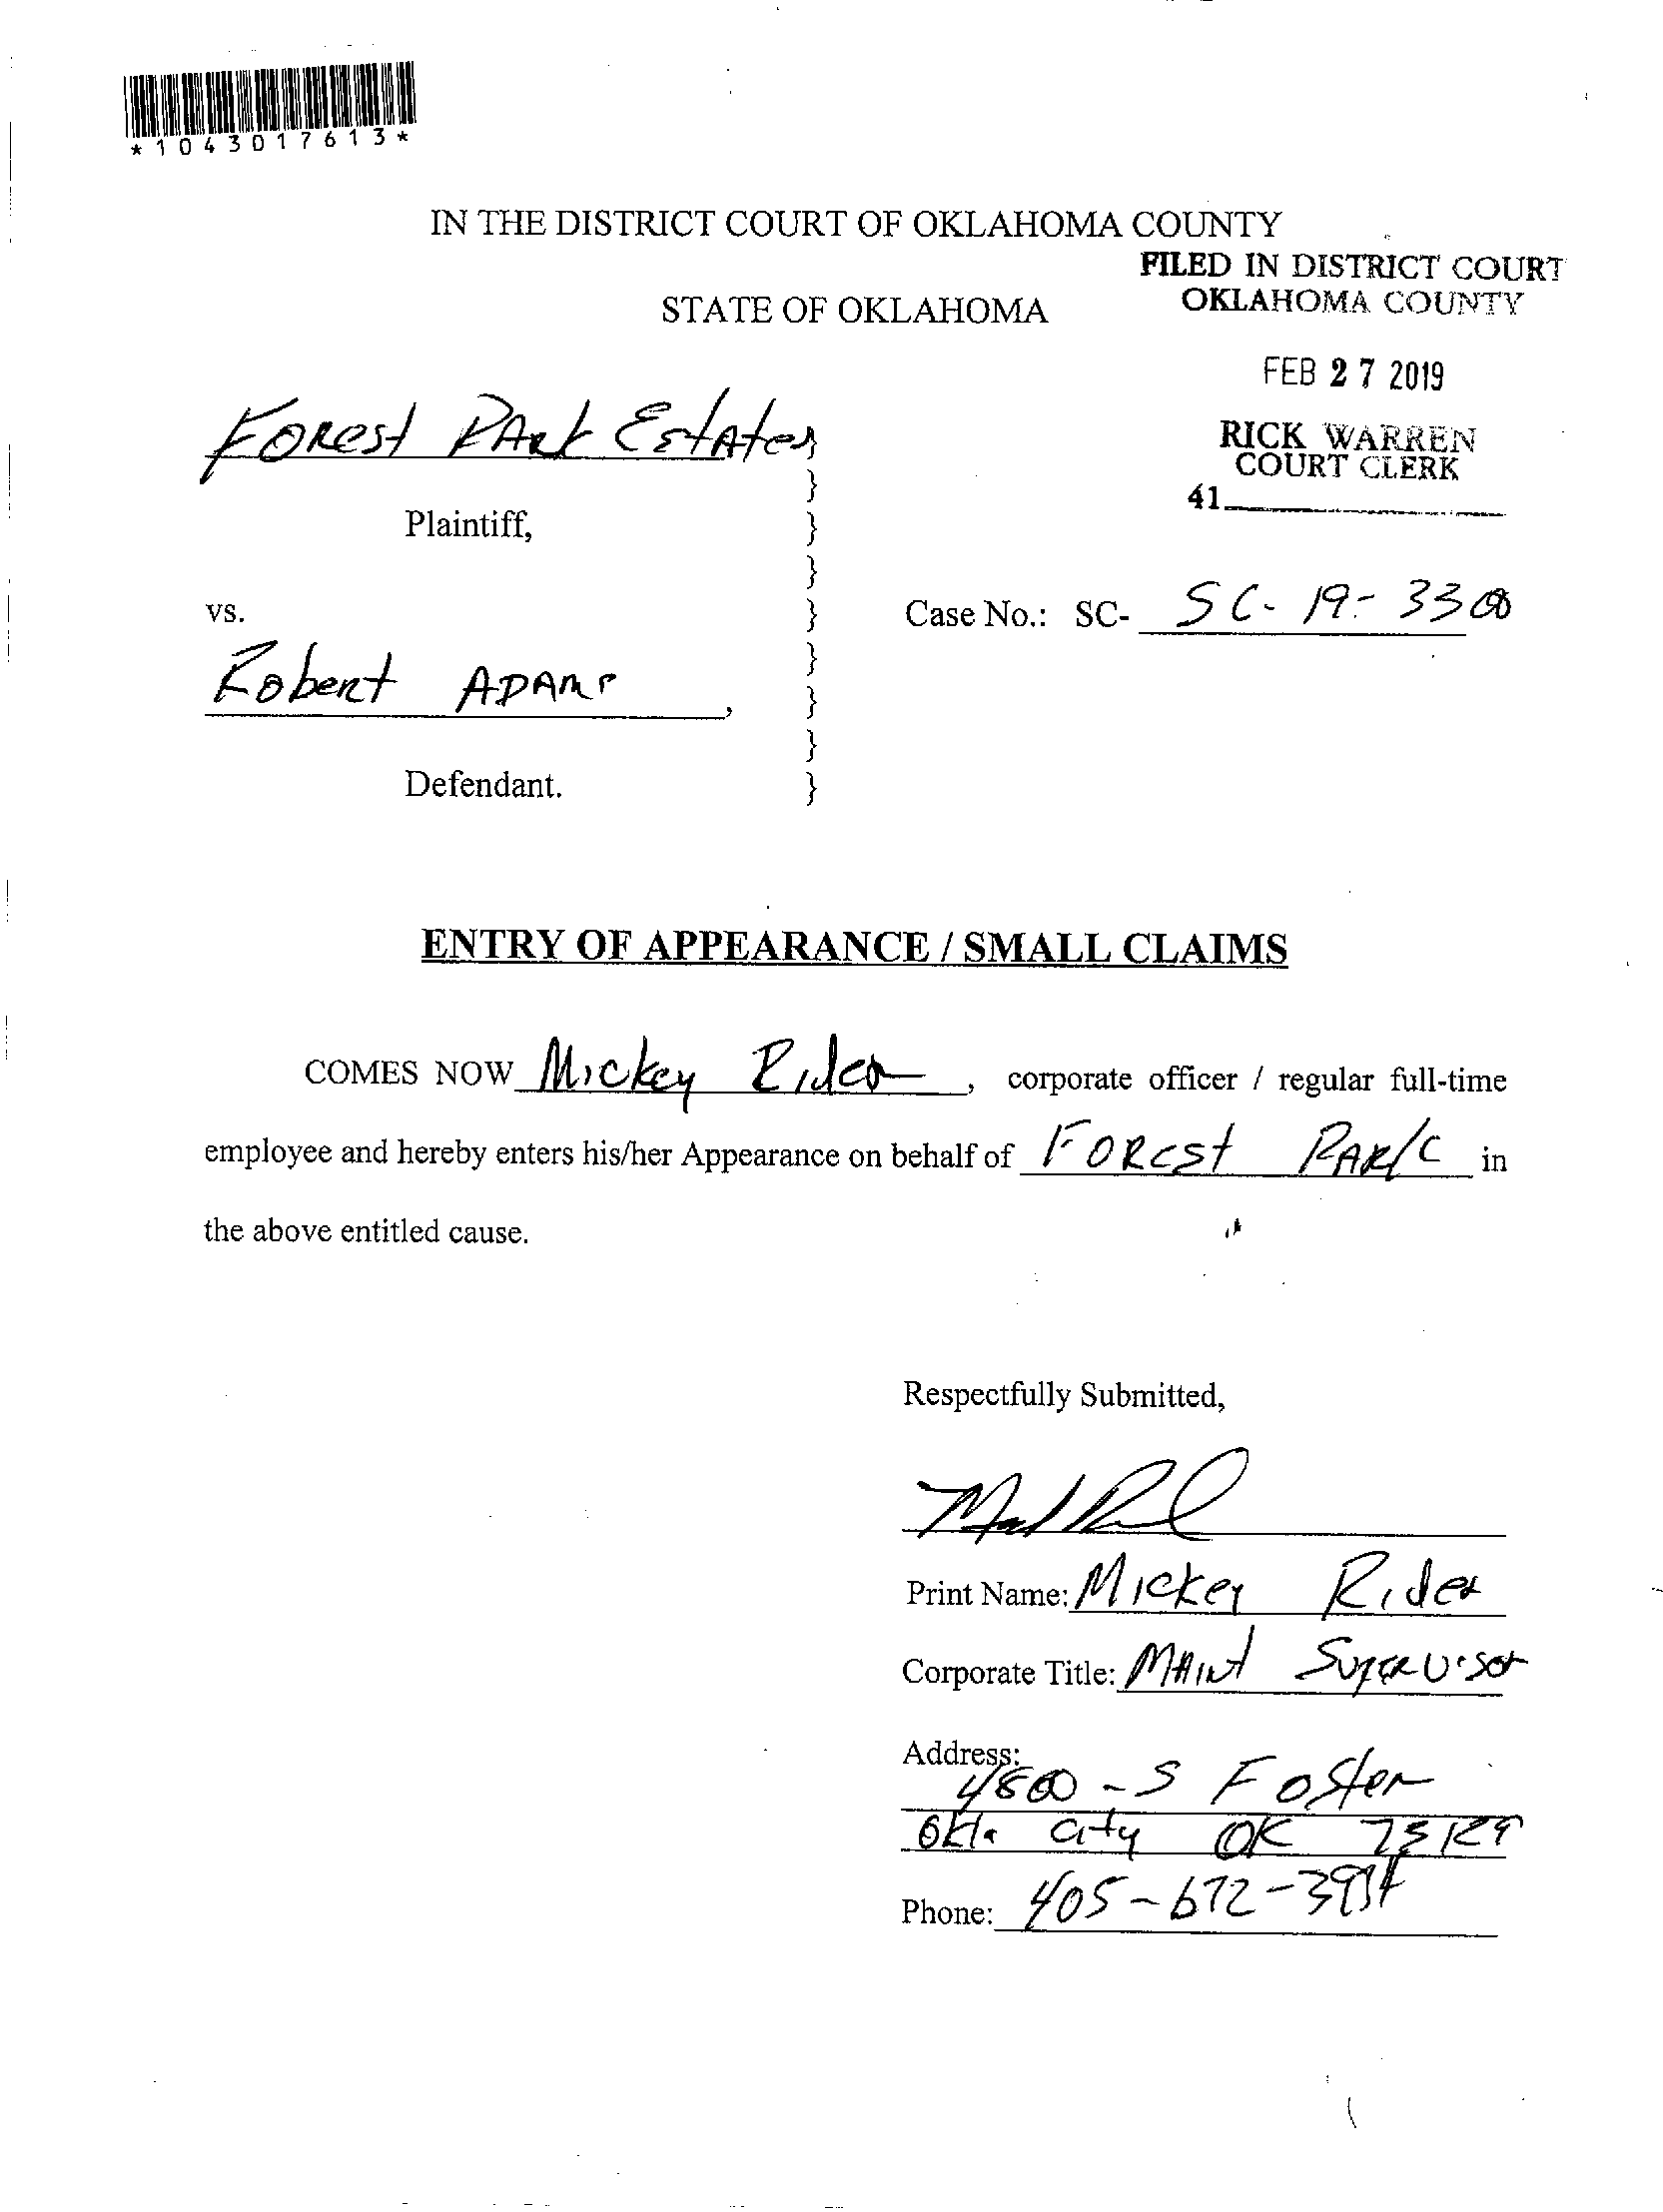 *1043017613*
IN THE DISTRICT COURT OF OKLAHOMA COUNTY
FILED IN DISTRICT COURT
OKLAHOMA COUNTY
STATE OF OKLAHOMA
FEB 27 2019
RICK WARREN
COURT CLERK
41
Forest Park Estates }
}
Plaintiff, }
}
vs. } Case No.: SC- SC-19-3300
}
Robert Adams, }
}
Defendant. }
ENTRY OF APPEARANCE / SMALL CLAIMS
COMES NOW Mickey Rider, corporate officer / regular full-time
employee and hereby enters his/her Appearance on behalf of Forest Park in
the above entitled cause.
Respectfully Submitted,
Print Name: Mickey Rider
Corporate Title: Maint Supervisor
Address:
4800 - S Foster
Okla City OK 73129
Phone: 405-672-3934